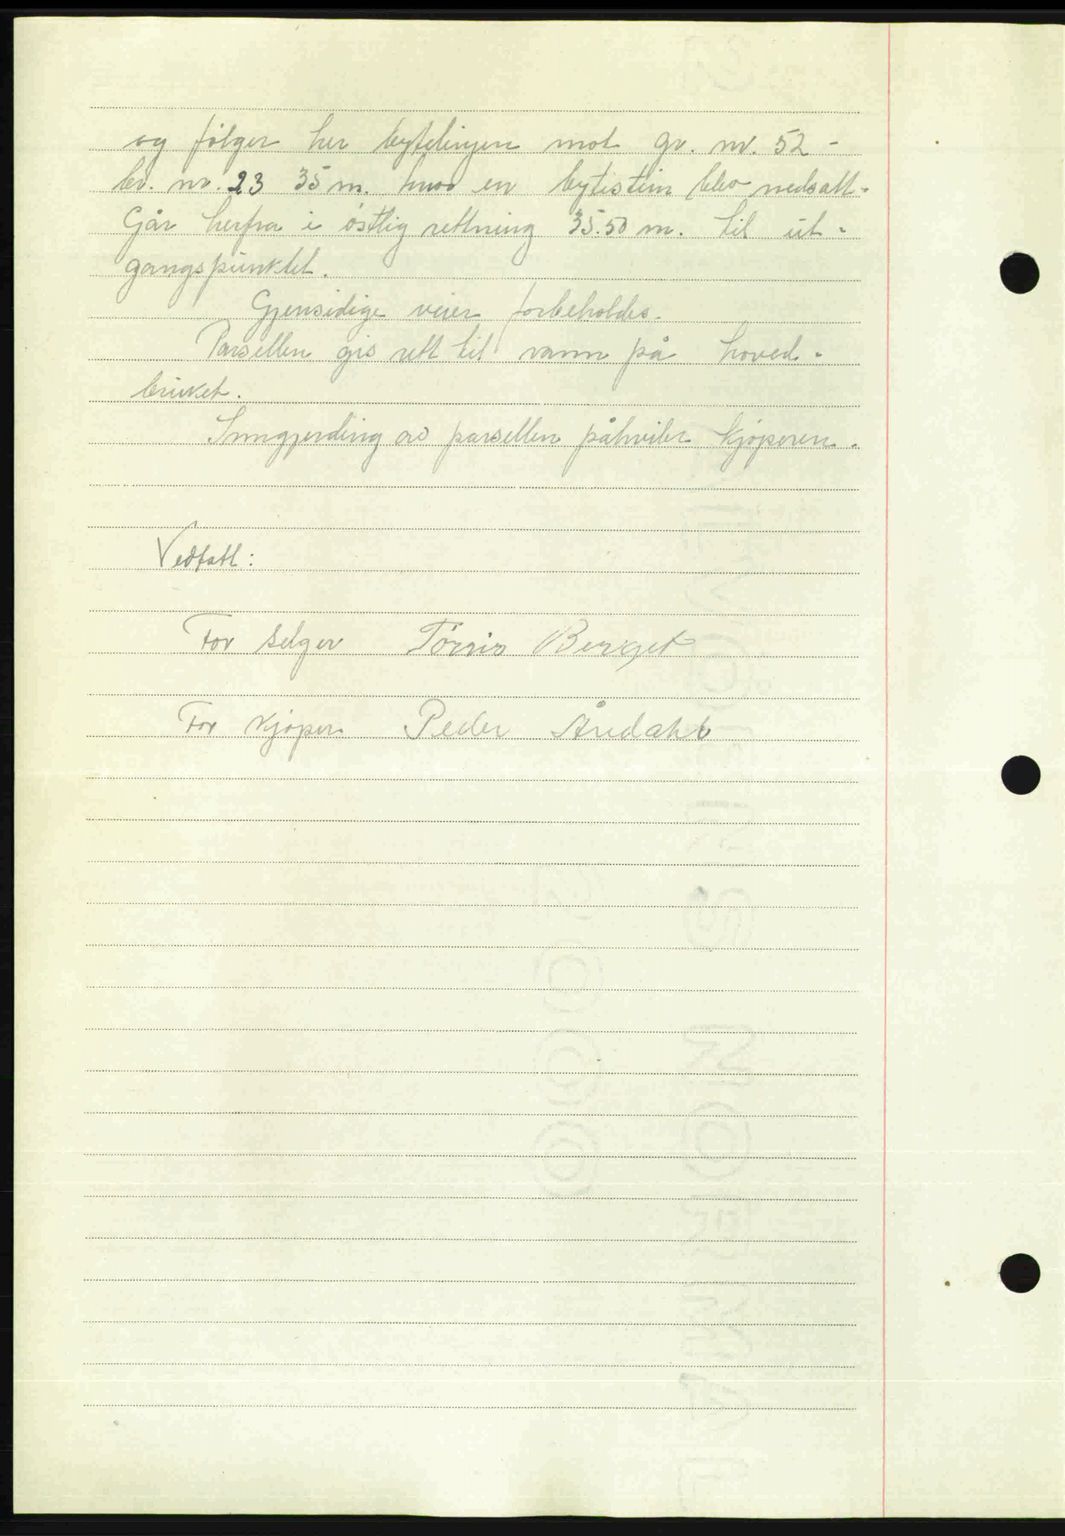 og følger her bytelinjen mot gr. nr. 52 -
br. nr. 23 35 m. hvor en bytestein blev nedsatt.
Går herfra i østlig rettning 35.50 m. til ut-
gangspunktet.
Gjensidige veier forbeholdes.
Parsellen gis rett til vann på hoved-
bruket.
Inngjerding av parsellen påhviler kjøperen.
Vedtatt:
For selger Tørris Berget
For kjøper Peder Årdahl
NORMAL